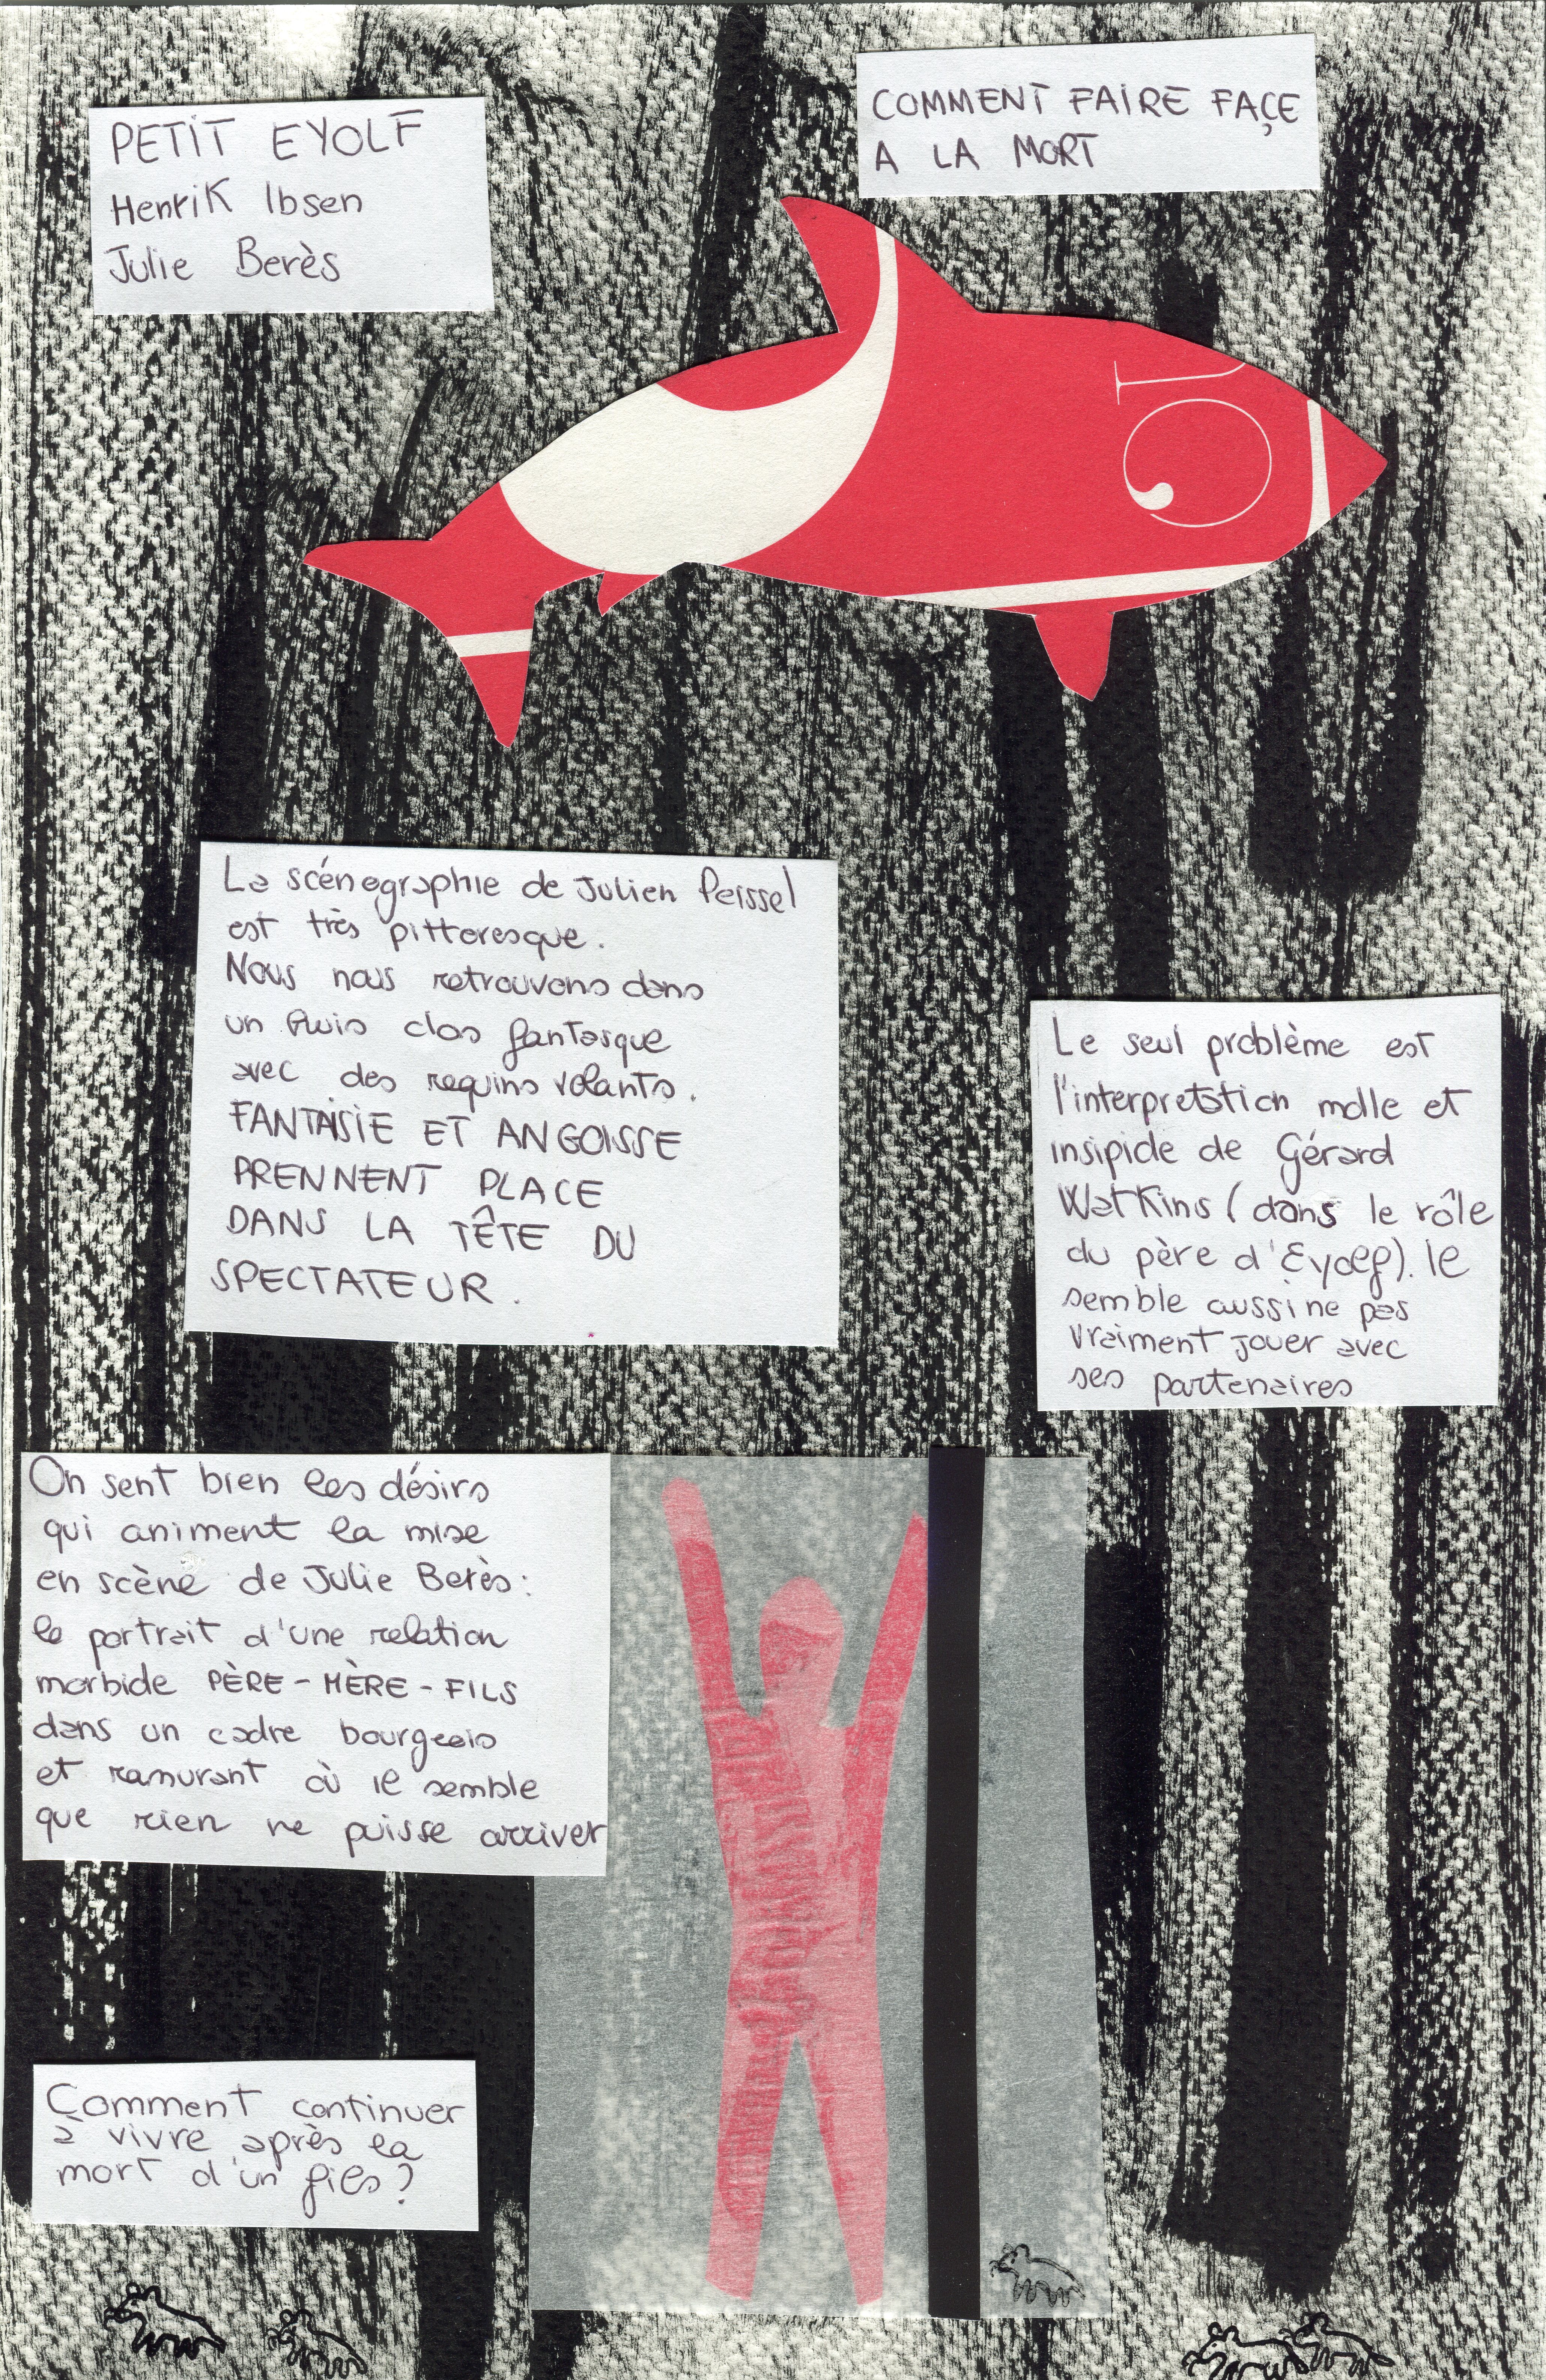 PETIT EYOLF
Henrik Ibsen
Julie Berès
COMMENT FAIRE FAÇE
A LA MORT
La scénographie de Julien Peissel
est très pittoresque.
Nous nous retrouvons dans
un huis clos fantasque
avec des requins volants.
FANTAISIE ET ANGOISSE
PRENNENT PLACE
DANS LA TÊTE DU
SPECTATEUR.
Le seul problème est
l'interprétation molle et
insipide de Gérard
Watkins (dans le rôle
du père d'Eyolf). Il
semble aussi ne pas
vraiment jouer avec
ses partenaires
On sent bien les désirs
qui animent la mise
en scène de Julie Berès:
le portrait d'une relation
morbide PÈRE-MÈRE-FILS
dans un cadre bourgeois
et rassurant où il semble
que rien ne puisse arriver
Comment continuer
à vivre après la
mort d'un fils?